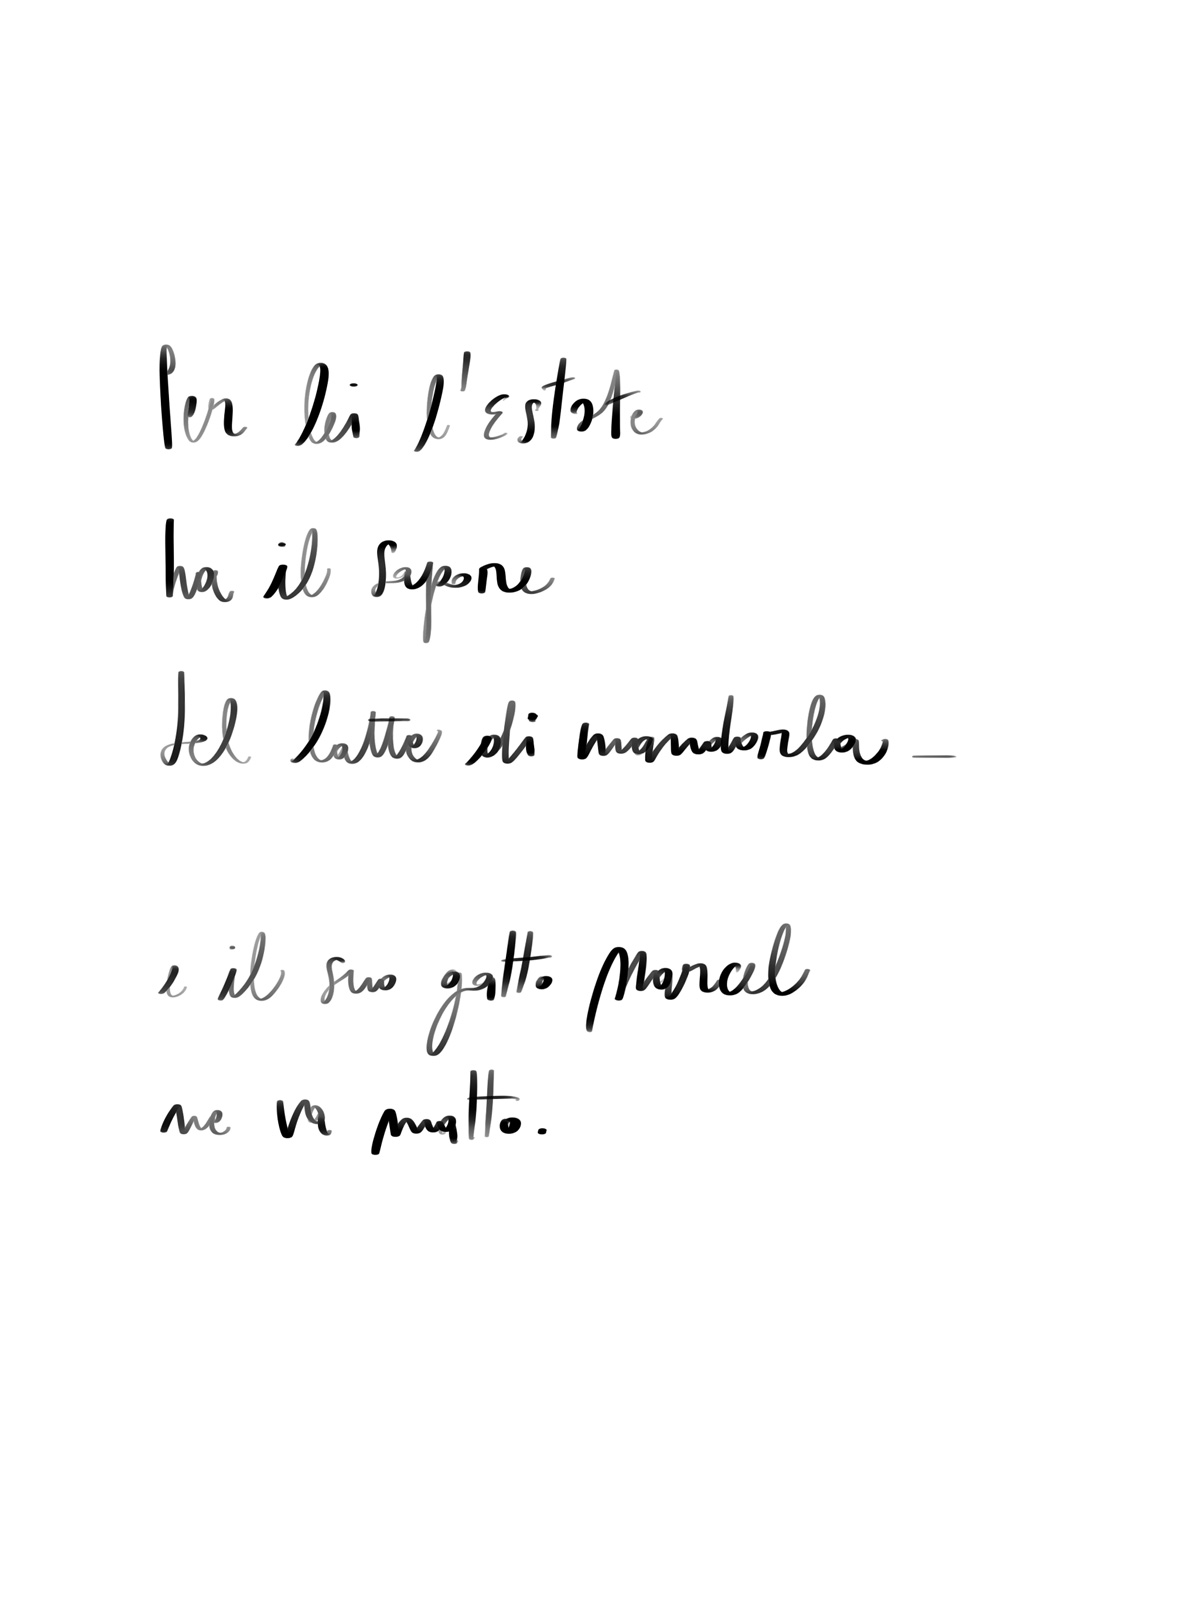 Per lei l'Estate
ha il sapore
del latte di mandorla _
e il suo gatto Marcel
ne va matto.